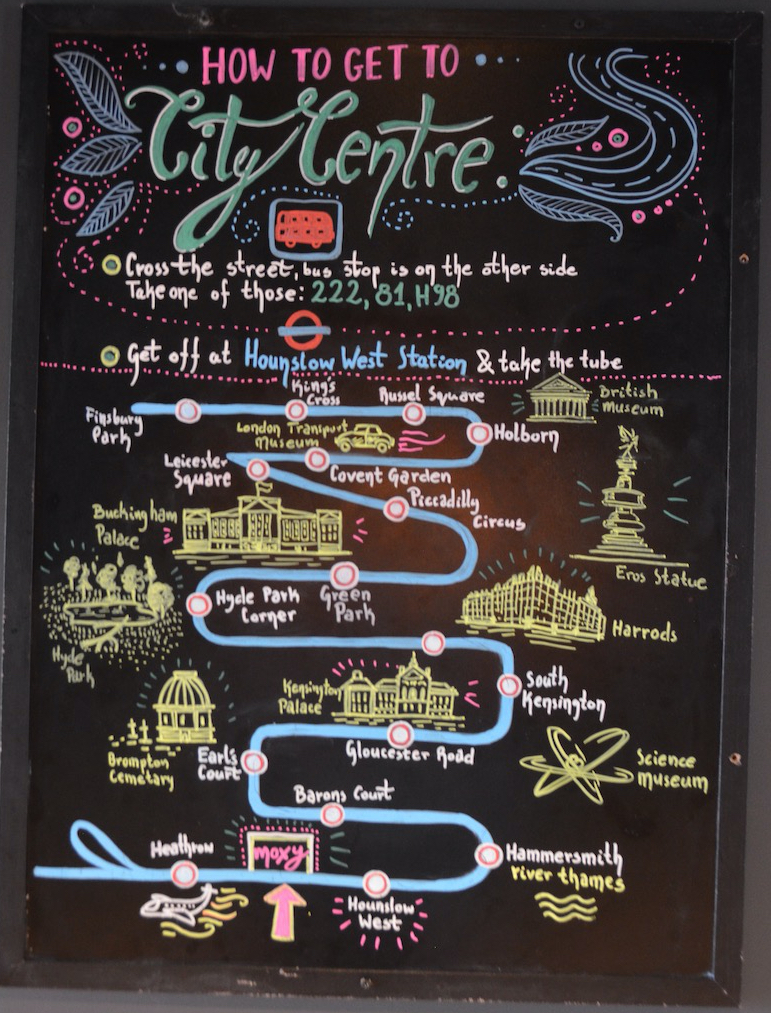 HOW TO GET TO
City Centre:
Cross the street, bus stop is on the other side
Take one of those: 222, 81, H98
Get off at Hounslow West Station & take the tube
Finsbury
Park
King's
Cross
Russel Square
British
Museum
Holborn
London Transport
Museum
Leicester
Square
Covent Garden
Piccadilly
Circus
Buckingham
Palace
Eros Statue
Hyde Park
Corner
Green
Park
Harrods
Hyde
Park
Kensington
Palace
South
Kensington
Gloucester Road
Brompton
Cemetary
Earl's
Court
Science
Museum
Barons Court
Heathrow
moxy
Hammersmith
river thames
Hounslow
West